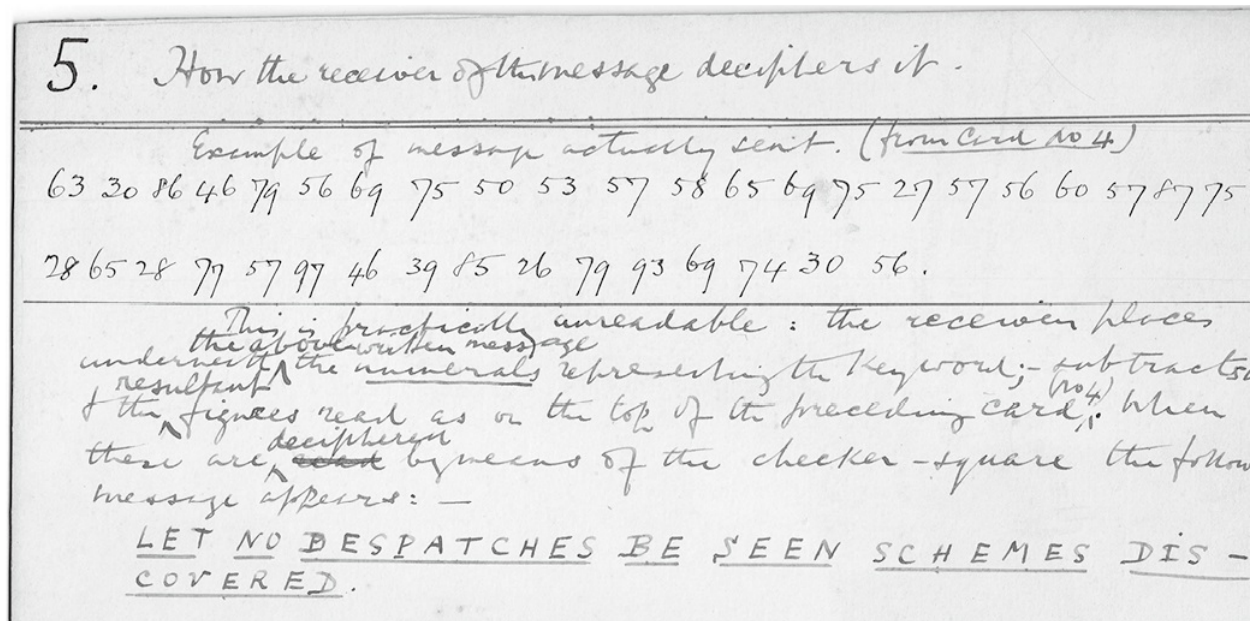 5. How the receiver of the message deciphers it.
Example of message actually sent. (from Card No 4)
63 30 86 46 79 56 69 75 50 53 57 58 65 69 75 27 57 56 60 57 87 75
28 65 28 77 57 97 46 39 85 26 79 93 69 74 30 56.
This is practically unreadable : the receiver places
the above written message
underneath the numerals representing the keyword; - subtracts
resultant (No 4)
& the figures read as on the top of the preceding card. When
deciphered
these are read by means of the checker-square the follow
message appears: —
LET NO DESPATCHES BE SEEN SCHEMES DIS-
COVERED.